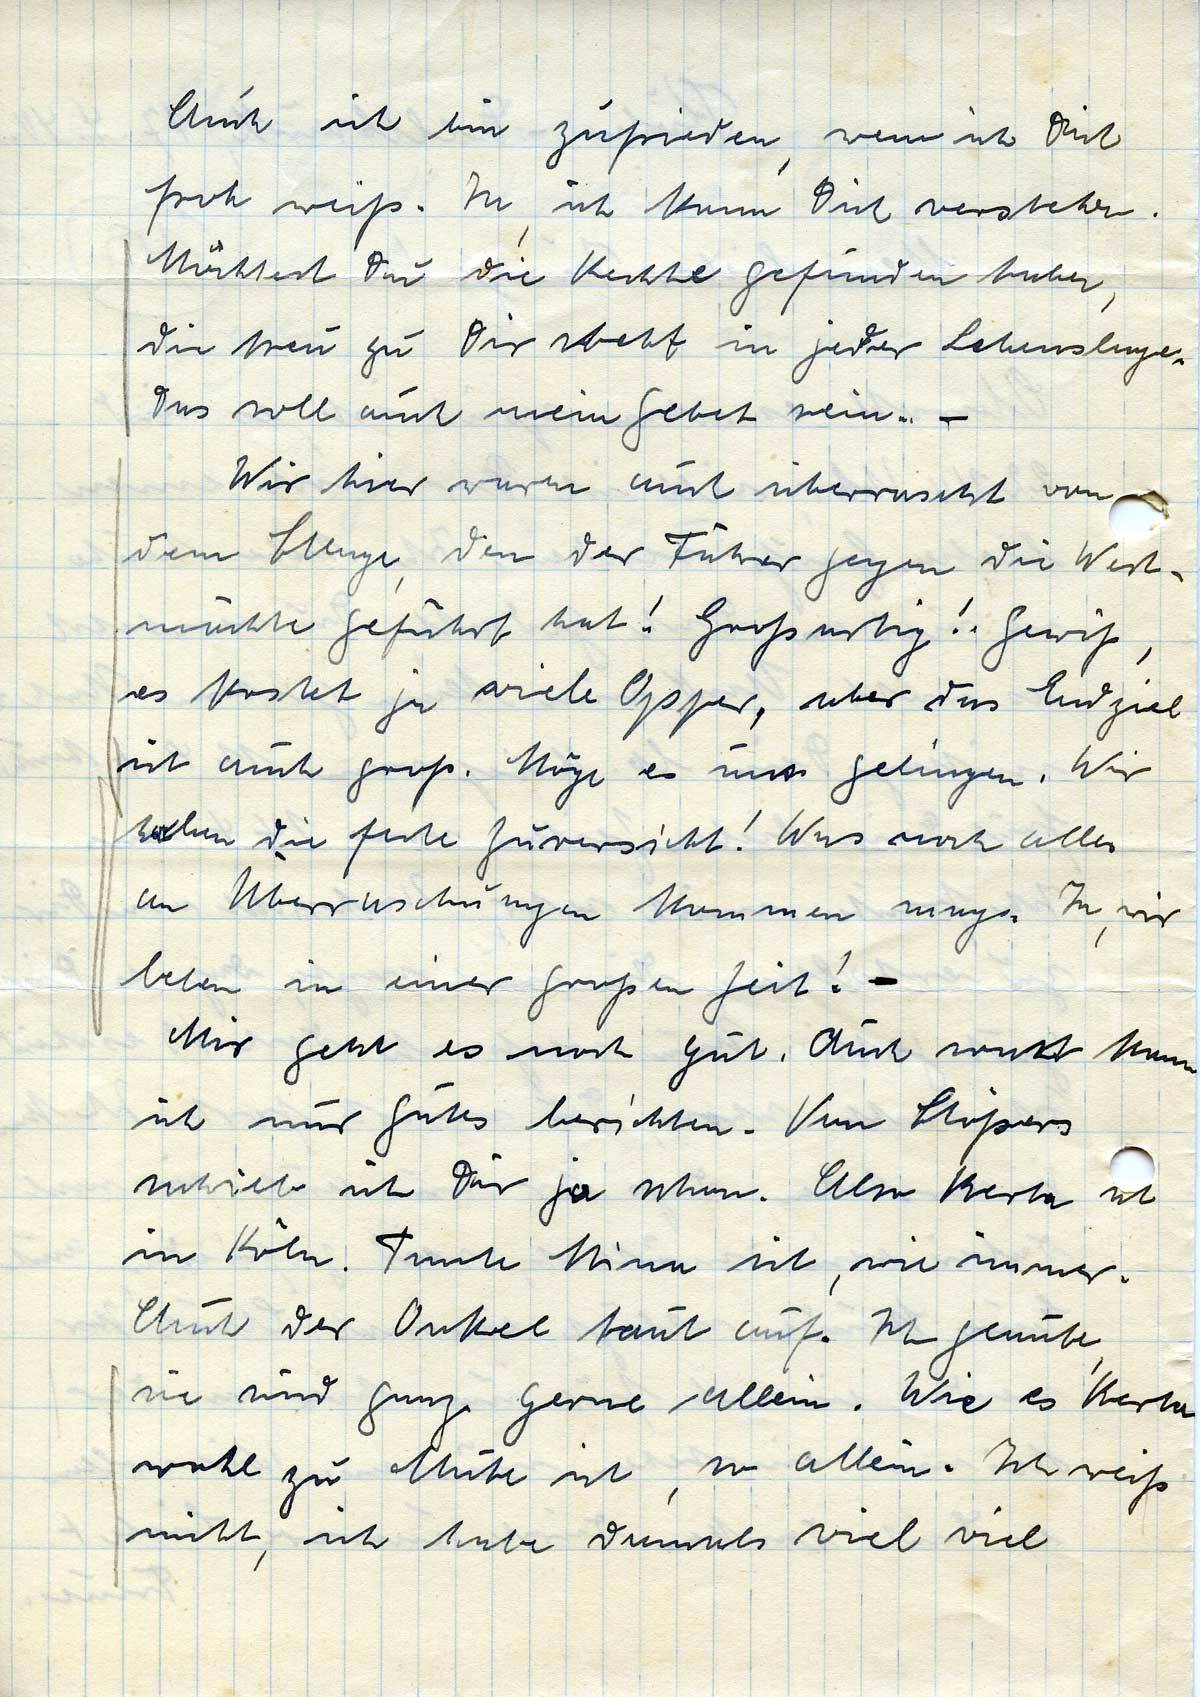 Auch ich bin zufrieden, wenn ich Dich
froh weiß. Ja, ich kann Dich verstehen.
Möchtest Du die Rechte gefunden haben,
die treu zu Dir steht in jeder Lebenslage.
Das soll auch mein Gebet sein. –
Wir hier waren auch überrascht von
dem Schlage, den der Führer gegen die West-
mächte geführt hat! Großartig! Gewiß,
es kostet ja viele Opfer, aber das Endziel
ist auch groß. Möge es uns gelingen. Wir
haben die feste Zuversicht! Was noch alles
an Überraschungen kommen mag. Ja, wir
leben in einer großen Zeit! –
Mir geht es noch gut. Auch sonst kann
ich nur Gutes berichten. Von
schrieb ich Dir ja schon. Also Herta ist
in Köln. Tante Minna ist, wie immer.
Auch der Onkel taut auf. Ich glaube,
sie sind ganz gerne allein. Wie es Herta
wohl zu Mute ist, so allein. Ich weiß
nicht, ich habe damals viel viel